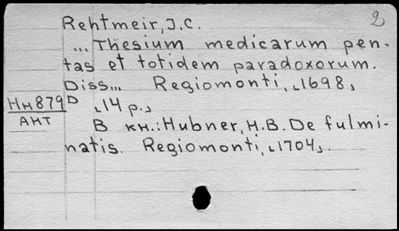 2
Rehtmeir, J.C.
... Thesium medicarum pen-
tas et totidem paradoxorum.
Diss... Regiomonti, 1698,
Нн879 D 14 p.,
АНТ
В кн.: Hubner, H.B. De fulmi-
natis. Regiomonti, 1704,.